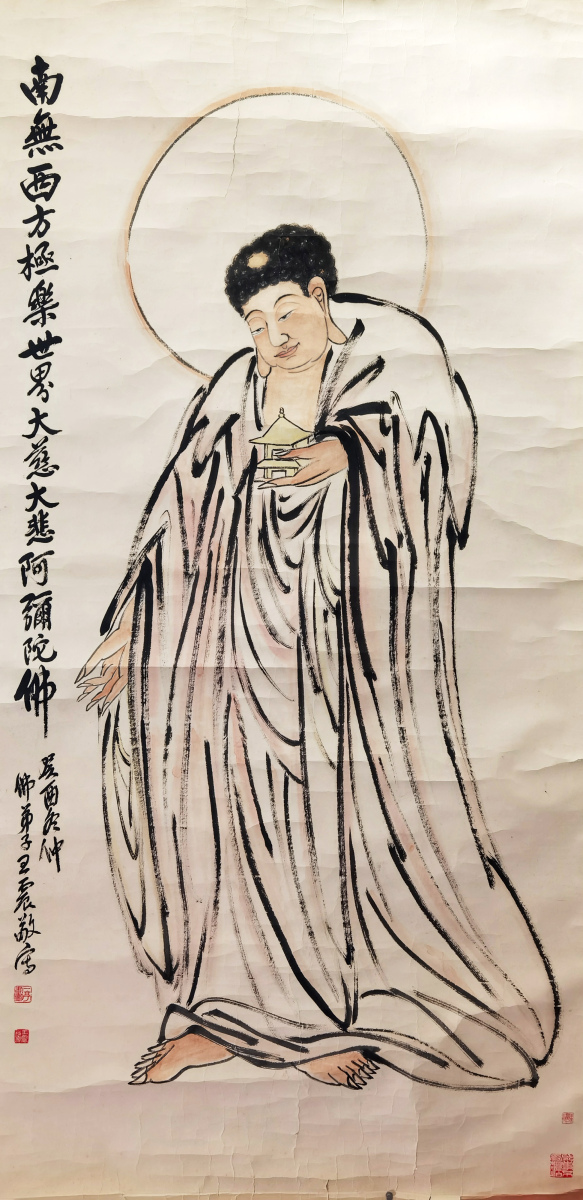 南無西方極樂世界大慈大悲阿彌陀佛
癸酉冬仲
佛弟子王震敬寫